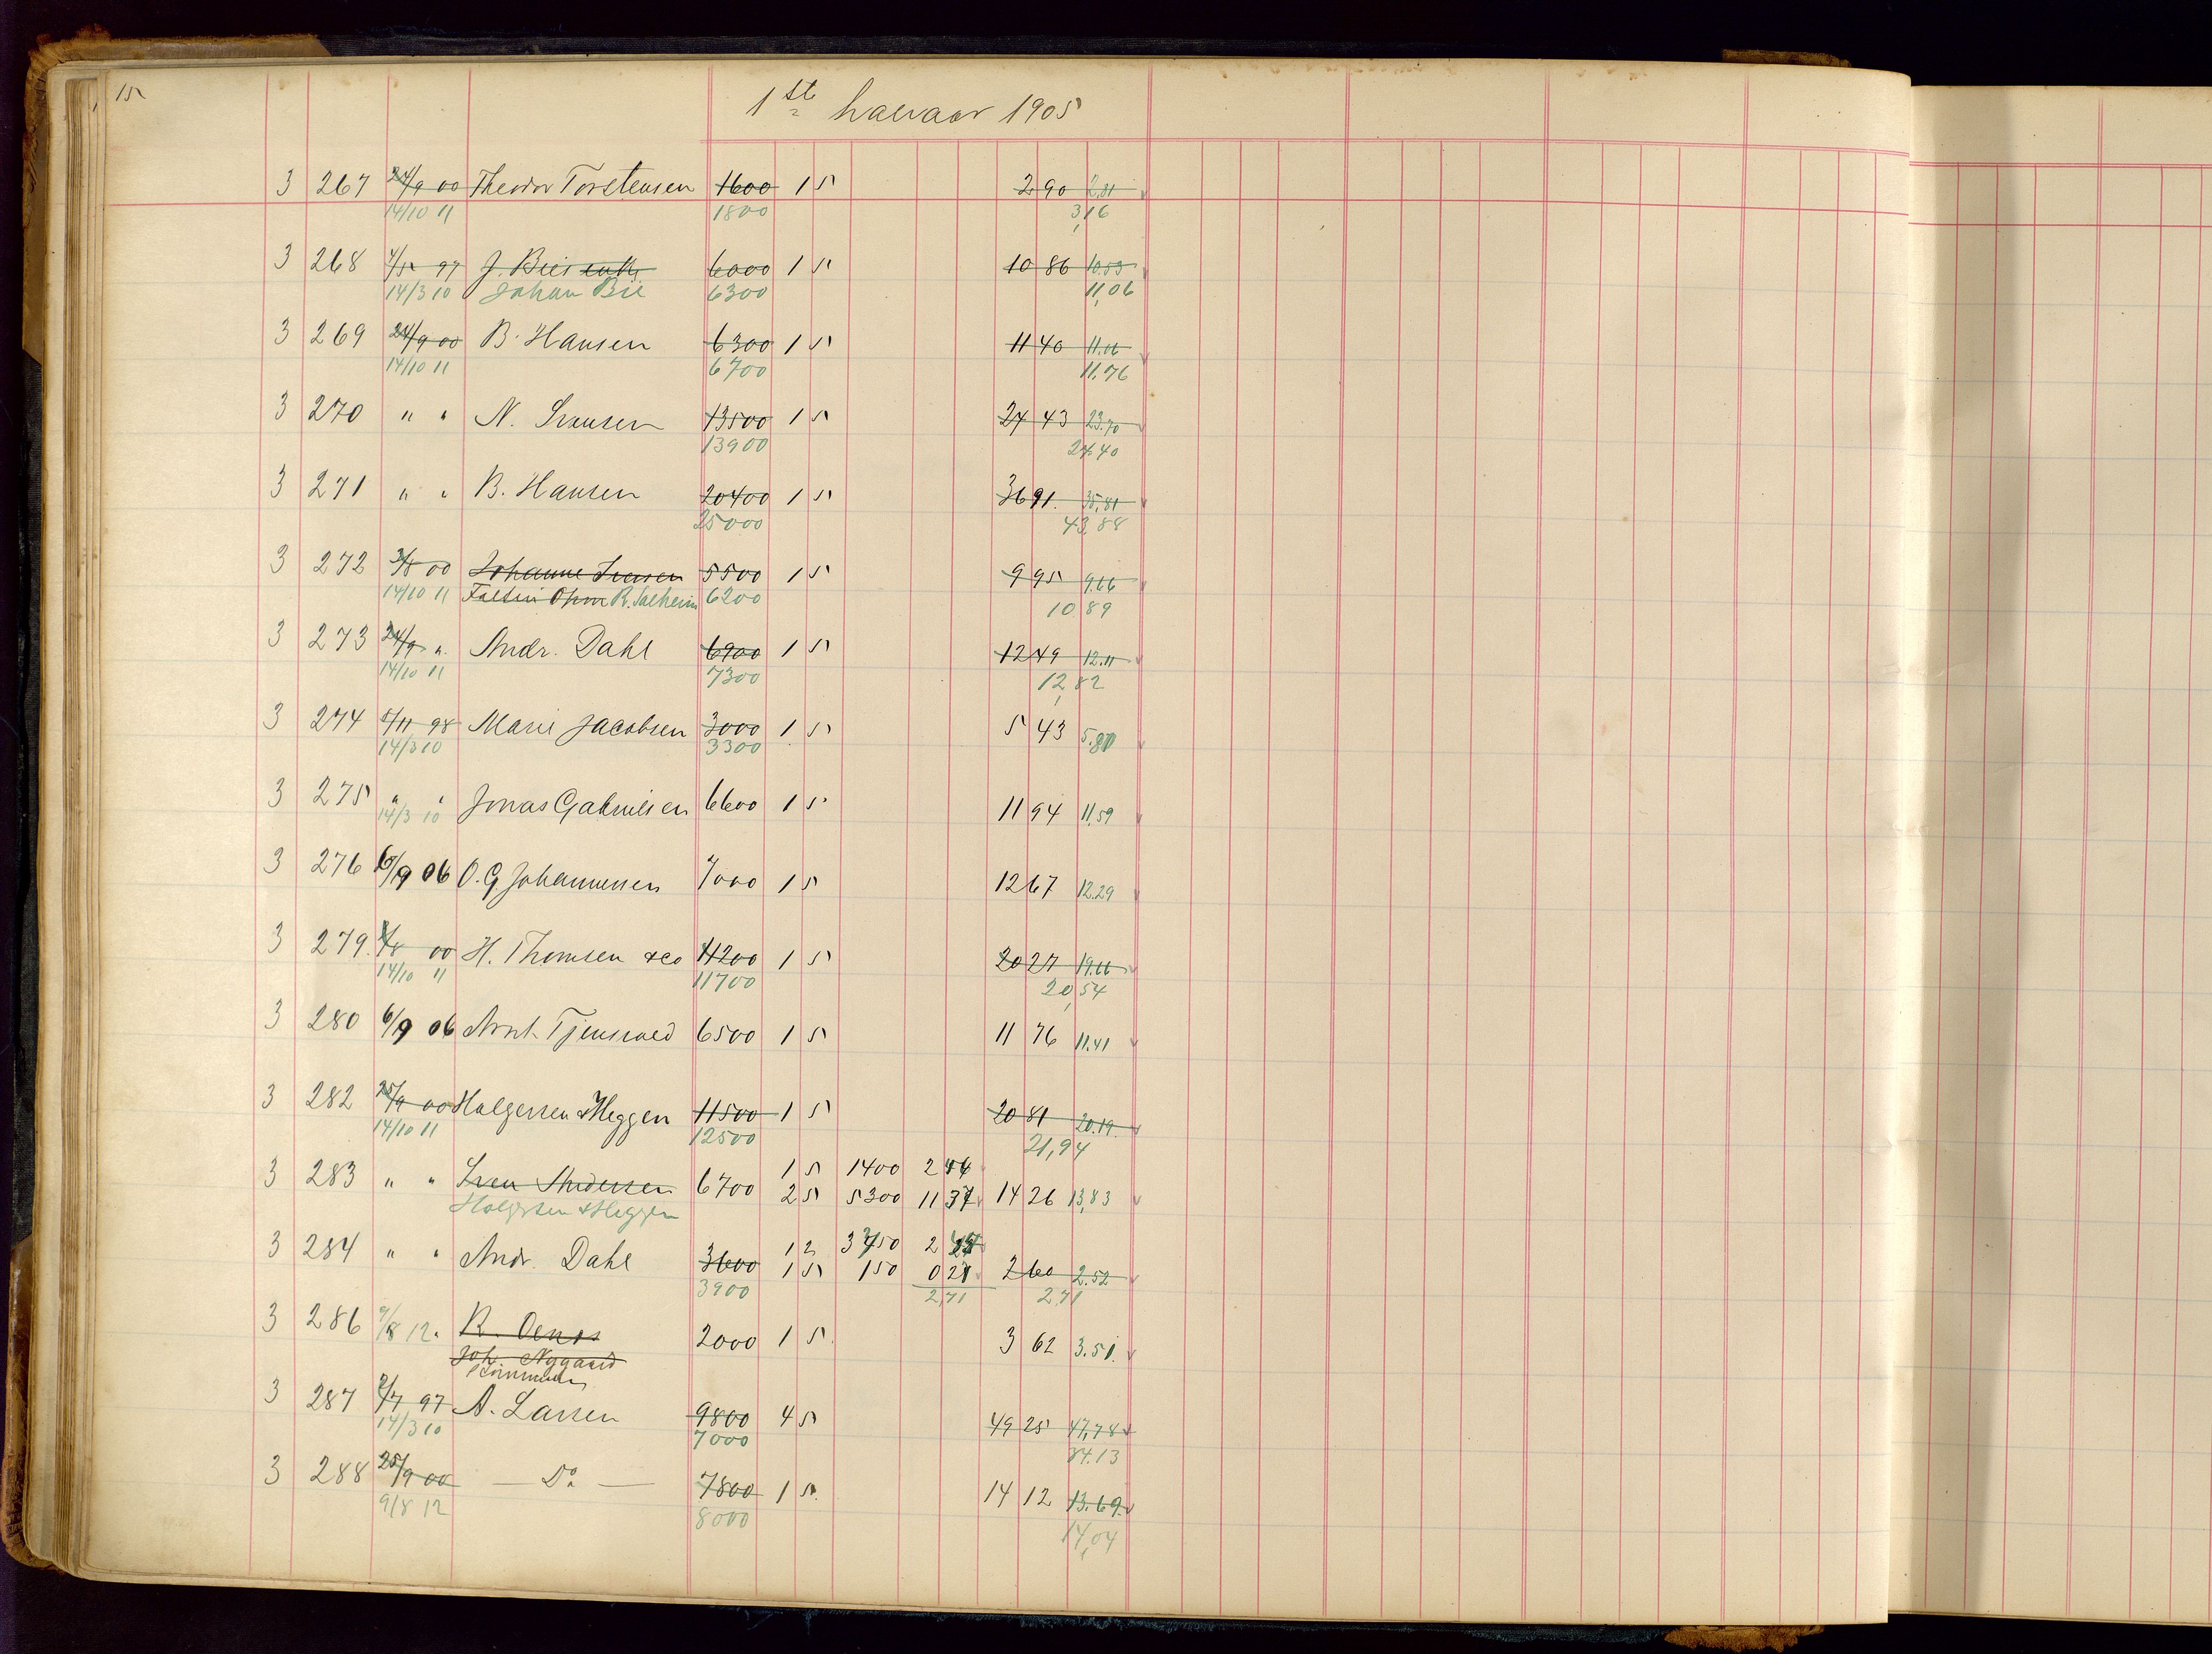 15
1st halvaar 1905
3 267 24/9 00 Theodor Torstensen 1600 1 5 2 90 2,81
14/10 11 1800 3,16
3 268 97 J. Bies enke 6000 1 5 10 86 10.53
14/3 10 Johan Bie 6300 11,06
3 269 24/9 00 B. Hansen 6300 1 5 11 40 11.06
14/10 11 6700 11,76
3 270 " " N. Svensen 13500 1 5 24 43 23.70
13900 24,40
3 271 " " B. Hansen 20400 1 5 36 91 35,81
25000 43,88
3 272 3/8 00 Johanne Iversen 5500 1 5 9 95 9.66
14/10 11 Faltin Ohm R. Salheim 6200 10 89
3 273 24/9 " Andr. Dahl 6900 1 5 12 49 12.11
14/10 11 7300 12,82
3 274 5/11 98 Marie Jacobsen 3000 1 5 5 43 5.80
14/3 10 3300
3 275 " " Jonas Gabrielsen 6600 1 5 11 94 11,59
14/3 10
3 276 6/9 06 O. G. Johannessen 7000 1 5 12 67 12.29
3 279 00 H. Thomsen & co 11200 1 5 20 27 19.66
14/10 11 11700 20,54
3 280 6/9 06 Arnt Tjensvold 6500 1 5 11 76 11.41
3 282 25/9 00 Holgersen & Heggen 11500 1 5 20 81 20.19
14/10 11 12500 21,94
1 5 1400 2 46
3 283 " " Sven Andersen 6700 2 5 5300 11 37 14 26 13,83
Holgersen & Heggen
1 2 3750 2
3 284 " " Andr. Dahl 3600 1 5 150 0 27 2 60 2.52
3900 2,71 2,71
3 286 9/8 12 R. Oenes 2000 1 5 3 62 3.51
Joh. Nygaard
Kommunen
3 287 2/7 97 A. Larsen 9800 4 5 49 25 47,78
14/3 10 7000 34.13
3 288 25/9 00 — Do — 7800 1 5 14 12 13.69
9/8 12 8000 14,04